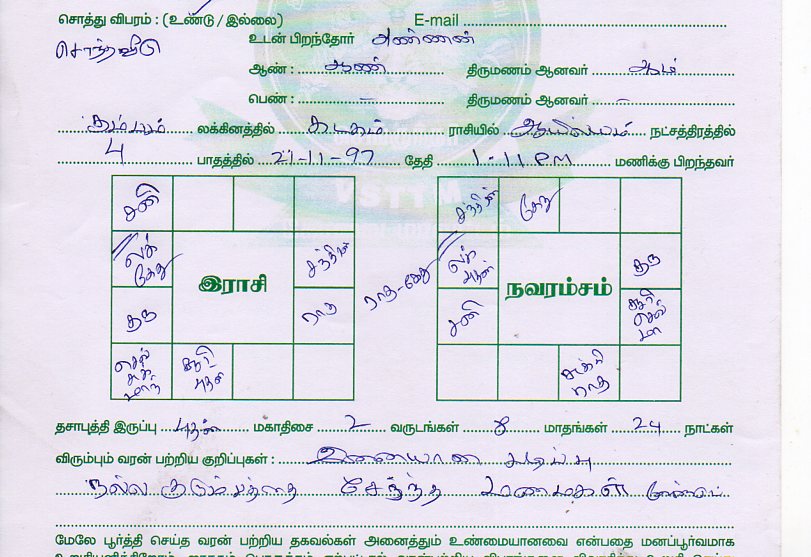 சொத்து விபரம் : (உண்டு / இல்லை) E-mail
சொந்தவீடு உடன் பிறந்தோர் அண்ணன்
ஆண் : ஆண் திருமணம் ஆனவர் ஆம்
பெண் : – திருமணம் ஆனவர் –
கும்பம் லக்கினத்தில் கடகம் ராசியில் ஆயில்யம் நட்சத்திரத்தில்
4 பாதத்தில் 21-11-97 தேதி 1-11 PM மணிக்கு பிறந்தவர்
VSTTM
சனி சந்திரன் கேது
லக் கேது சந்திரன் லக் புதன் குரு
இராசி ராகு-கேது நவரம்சம்
குரு ராகு சனி சூரி செவ் மா
செவ் சுக் மாந் சூரி புதன் சுக்கி ராகு
தசாபுத்தி இருப்பு புதன் மகாதிசை 2 வருடங்கள் 8 மாதங்கள் 24 நாட்கள்
விரும்பும் வரன் பற்றிய குறிப்புகள் : படிப்பு
நல்ல குடும்பத்தை சேர்ந்த மணமகள்
மேலே பூர்த்தி செய்த வரன் பற்றிய தகவல்கள் அனைத்தும் உண்மையானவை என்பதை மனப்பூர்வமாக